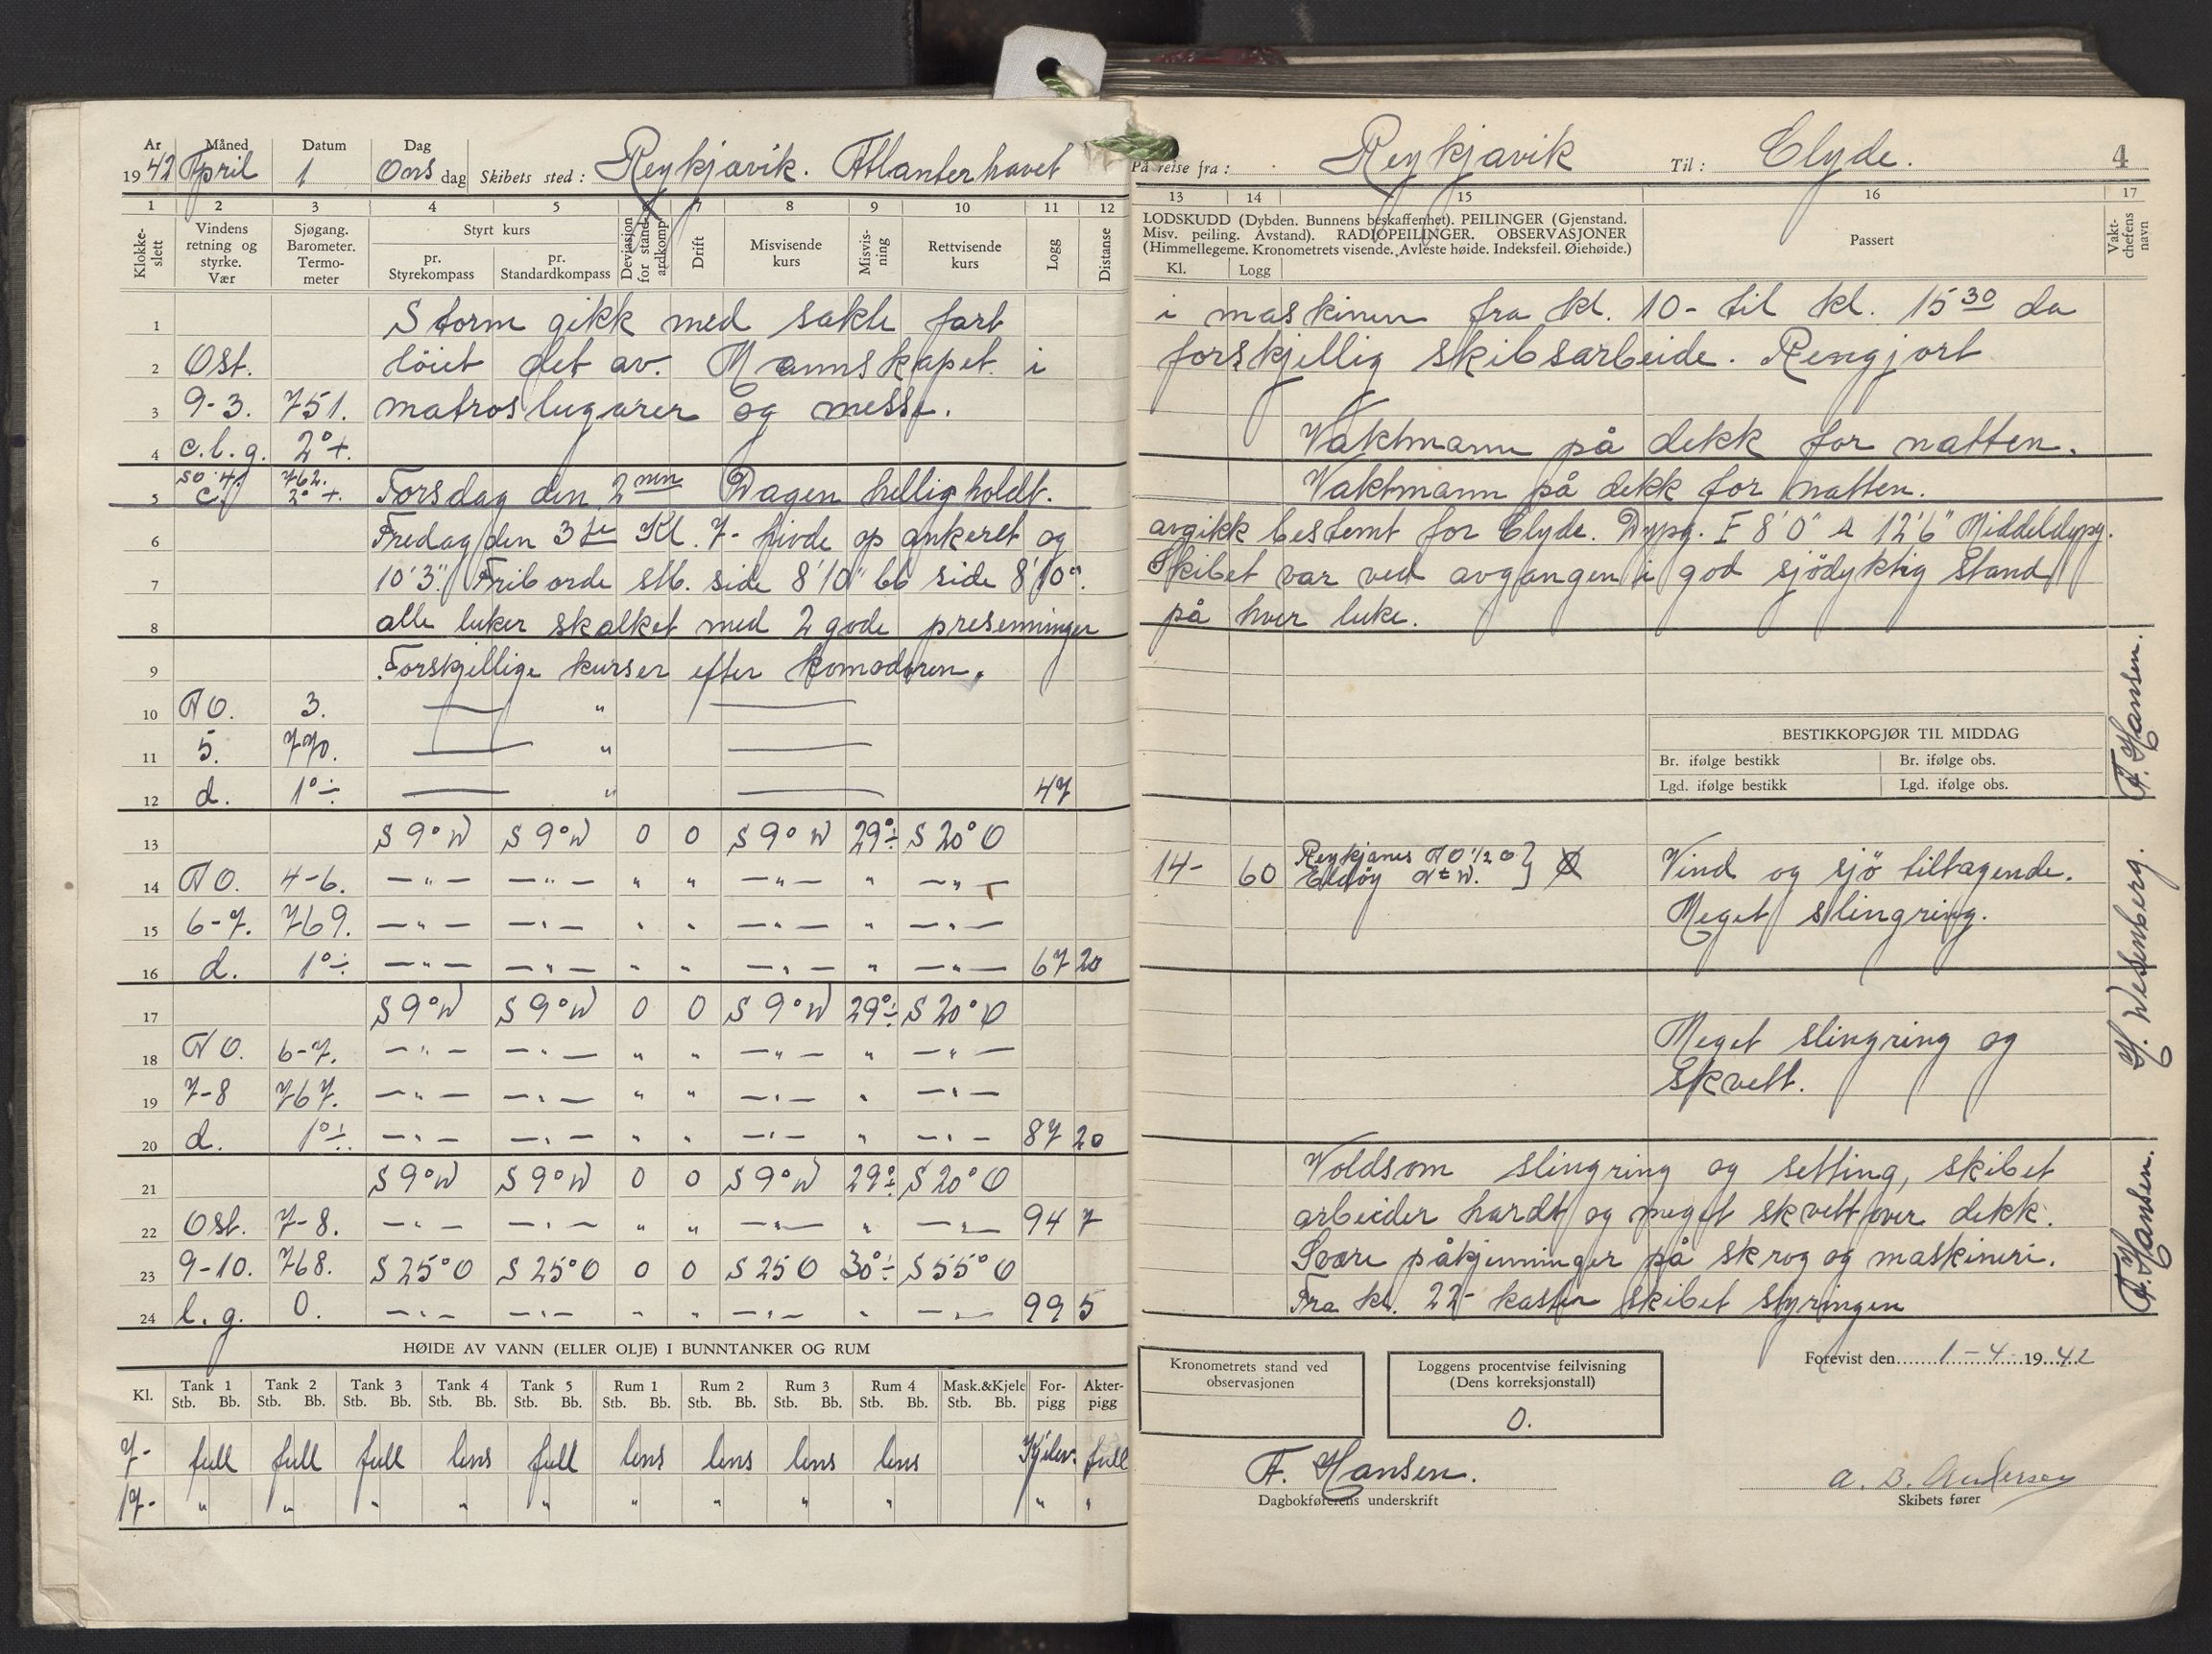 År Måned Datum Dag
1942 April 1 Onsdag Skibets sted: Reykjavik. Atlanterhavet
1 2 3 4 5 6 7 8 9 10 11 12
Klokkeslett
Vindens retning og styrke. Vær
Sjøgang. Barometer. Termometer
Styrt kurs
pr. Styrekompass
pr. Standardkompass
Deviasjon for standardkomp
Drift
Misvisende kurs
Misvisning
Rettvisende kurs
Logg
Distanse
1 Storm gikk med sakte fart
2 Ost. löiet det av. Mannskapet i
3 9-3. 751. matroslugarer og messe.
4 c.l.g. 2°+.
5 SO 4. c. 762. 2°+. Torsdag den 2nen Dagen helligholdt.
6 Fredag den 3je Kl. 7- hivde op ankeret og
7 10'3". Friborde stb. side 8'10" bb side 8'10".
8 alle luker skalket med 2 gode presenninger
9 Forskjellige kurser efter komodoren.
10 NO. 3. — " —
11 5. 770. — " —
12 d. 1°÷ — " — 47
13 S 9° W S 9° W 0 0 S 9° W 29°÷ S 20° O
14 NO. 4-6. —"— —"— " " —"— " —"—
15 6-7. 769. —"— —"— " " —"— " —"—
16 d. 1°÷. —"— —"— " " —"— " —"— 67 20
17 S 9° W S 9° W 0 0 S 9° W 29°÷ S 20° O
18 NO. 6-7. —"— —"— " " —"— " —"—
19 7-8 767. —"— —"— " " —"— " —"—
20 d. 1°÷. —"— —"— " " —"— " —"— 87 20
21 S 9° W S 9° W 0 0 S 9° W 29°÷ S 20° O
22 Ost. 7-8. —"— —"— " " —"— " —"— 94 7
23 9-10. 768. S 25° O S 25° O 0 0 S 25 O 30°÷ S 55° O
24 l.g. 0. —"— —"— " " —"— " —"— 99 5
HØIDE AV VANN (ELLER OLJE) I BUNNTANKER OG RUM
Kl. Tank 1 Tank 2 Tank 3 Tank 4 Tank 5 Rum 1 Rum 2 Rum 3 Rum 4 Mask.&Kjele Forpigg Akterpigg
Stb. Bb. Stb. Bb. Stb. Bb. Stb. Bb. Stb. Bb. Stb. Bb. Stb. Bb. Stb. Bb. Stb. Bb. Stb. Bb.
7- full full full lens full lens lens lens lens full
17- " " " " " " " " " " "
På reise fra: Reykjavik Til: Clyde. 4
13 14 15 16 17
LODSKUDD (Dybden. Bunnens beskaffenhet). PEILINGER (Gjenstand.
Misv. peiling. Avstand). RADIOPEILINGER. OBSERVASJONER
(Himmellegeme. Kronometrets visende. Avleste høide. Indeksfeil. Øiehøide.)
Kl. Logg
Passert
Vaktchefens navn
i maskinen fra kl. 10- til kl. 15 30 da
forskjellig skibsarbeide. Rengjort
Vaktmann på dekk for natten.
Vaktmann på dekk for natten.
avgikk bestemt for Clyde. Dypg. F 8'0" A 12'6" Middeldypg.
Skibet var ved avgangen i god sjödyktig stand
på hver luke.
F. Hansen.
BESTIKKOPGJØR TIL MIDDAG
Br. ifølge bestikk Br. ifølge obs.
Lgd. ifølge bestikk Lgd. ifølge obs.
14- 60 Reykjanes NO 1/2 O } Vind og sjö tiltagende.
Eldöy NtW.
Meget slingring.
H. Wesenberg.
Meget slingring og
skvett.
Voldsom slingring og setting, skibet
arbeider hardt og meget skvett over dekk.
Svære påkjenninger på skrog og maskineri.
Fra kl. 22- kaster skibet styringen
F. Hansen.
Kronometrets stand ved
observasjonen
Loggens procentvise feilvisning
(Dens korreksjonstall)
0.
Forevist den 1-4 1942
F. Hansen.
Dagbokførerens underskrift
A. B. Andersen
Skibets fører